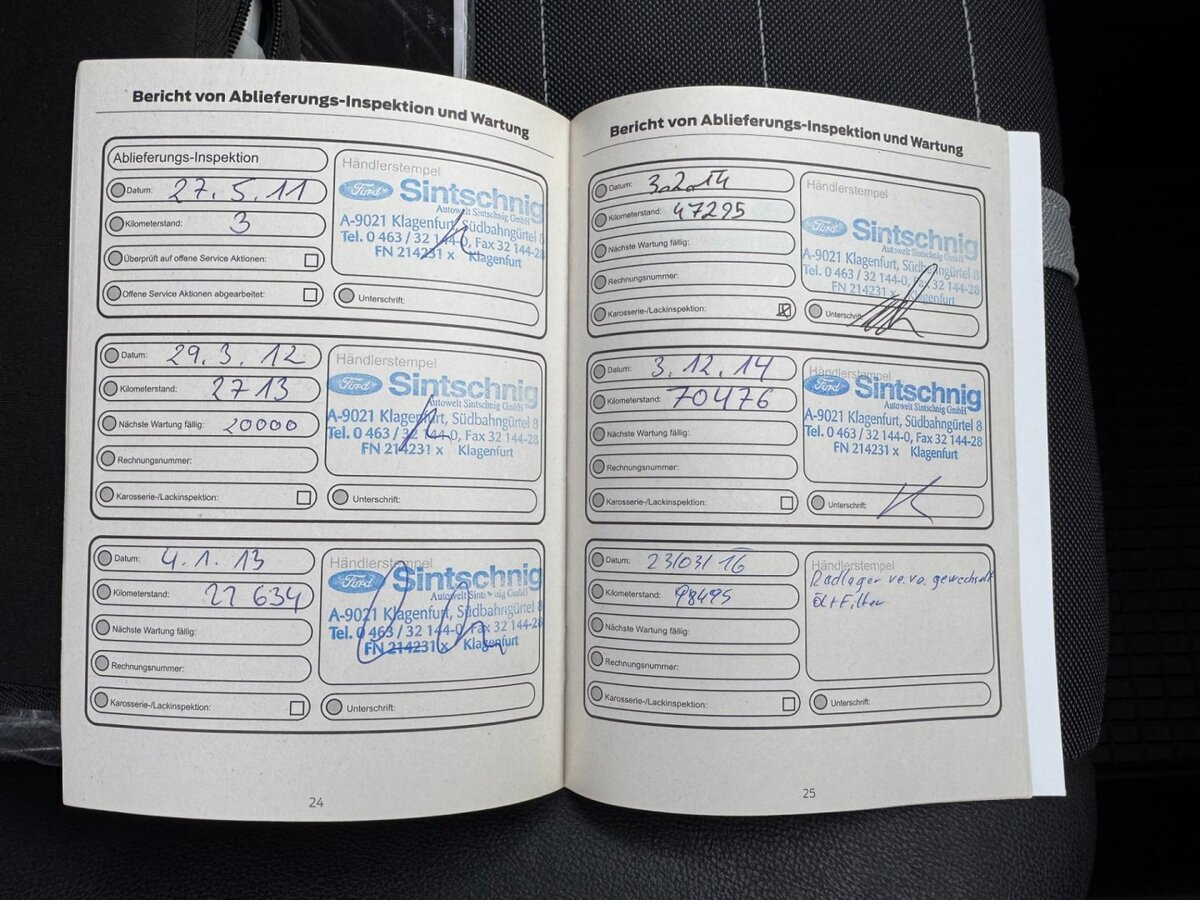 Bericht von Ablieferungs-Inspektion und Wartung
Ablieferungs-Inspektion
Datum: 27.5.11
Kilometerstand: 3
Überprüft auf offene Service Aktionen:
Offene Service Aktionen abgearbeitet:
Händlerstempel
Ford Sintschnig
Autowelt Sintschnig GmbH
A-9021 Klagenfurt, Südbahngürtel 8
Tel. 0 463 / 32 144-0, Fax 32 144-28
FN 214231 x Klagenfurt
Unterschrift:
Datum: 29.3.12
Kilometerstand: 2713
Nächste Wartung fällig: 20000
Rechnungsnummer:
Karosserie-/Lackinspektion:
Händlerstempel
Ford Sintschnig
Autowelt Sintschnig GmbH
A-9021 Klagenfurt, Südbahngürtel 8
Tel. 0 463 / 32 144-0, Fax 32 144-28
FN 214231 x Klagenfurt
Unterschrift:
Datum: 4.1.13
Kilometerstand: 22 634
Nächste Wartung fällig:
Rechnungsnummer:
Karosserie-/Lackinspektion:
Händlerstempel
Ford Sintschnig
Autowelt Sintschnig GmbH
A-9021 Klagenfurt, Südbahngürtel 8
Tel. 0 463 / 32 144-0, Fax 32 144-28
FN 214231 x Klagenfurt
Unterschrift:
24
Bericht von Ablieferungs-Inspektion und Wartung
Datum: 3.2.14
Kilometerstand: 47295
Nächste Wartung fällig:
Rechnungsnummer:
Karosserie-/Lackinspektion:
Händlerstempel
Ford Sintschnig
Autowelt Sintschnig GmbH
A-9021 Klagenfurt, Südbahngürtel 8
Tel. 0 463 / 32 144-0, Fax 32 144-28
FN 214231 x Klagenfurt
Unterschrift:
Datum: 3.12.14
Kilometerstand: 70476
Nächste Wartung fällig:
Rechnungsnummer:
Karosserie-/Lackinspektion:
Händlerstempel
Ford Sintschnig
Autowelt Sintschnig GmbH
A-9021 Klagenfurt, Südbahngürtel 8
Tel. 0 463 / 32 144-0, Fax 32 144-28
FN 214231 x Klagenfurt
Unterschrift:
Datum: 23/03/16
Kilometerstand: 98495
Nächste Wartung fällig:
Rechnungsnummer:
Karosserie-/Lackinspektion:
Händlerstempel
Radlager ve.va. gewechselt
Öl+Filter
Unterschrift:
25